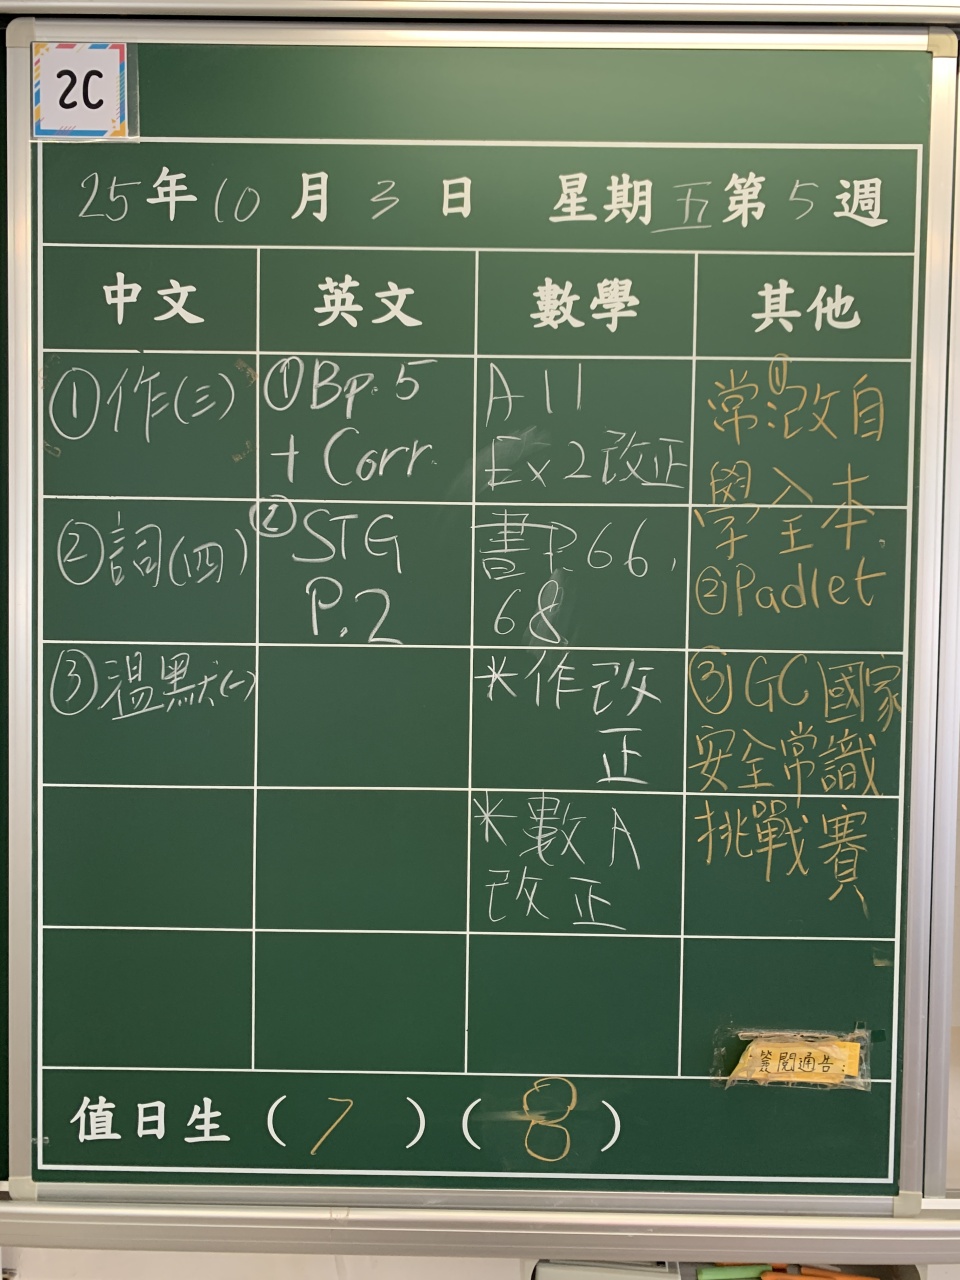 2C
25年10月3日 星期五第5週
中文 英文 數學 其他
①作(三)
②詞(四)
③溫默(一)
①Bp.5
+ Corr.
②STG
P.2
A 11
Ex 2 改正
書P.66,
68
*作改
正
*數A
改正
①常改自
學全本.
②Padlet
③GC國家
安全常識
挑戰賽
簽閱通告:
值日生(7)(8)